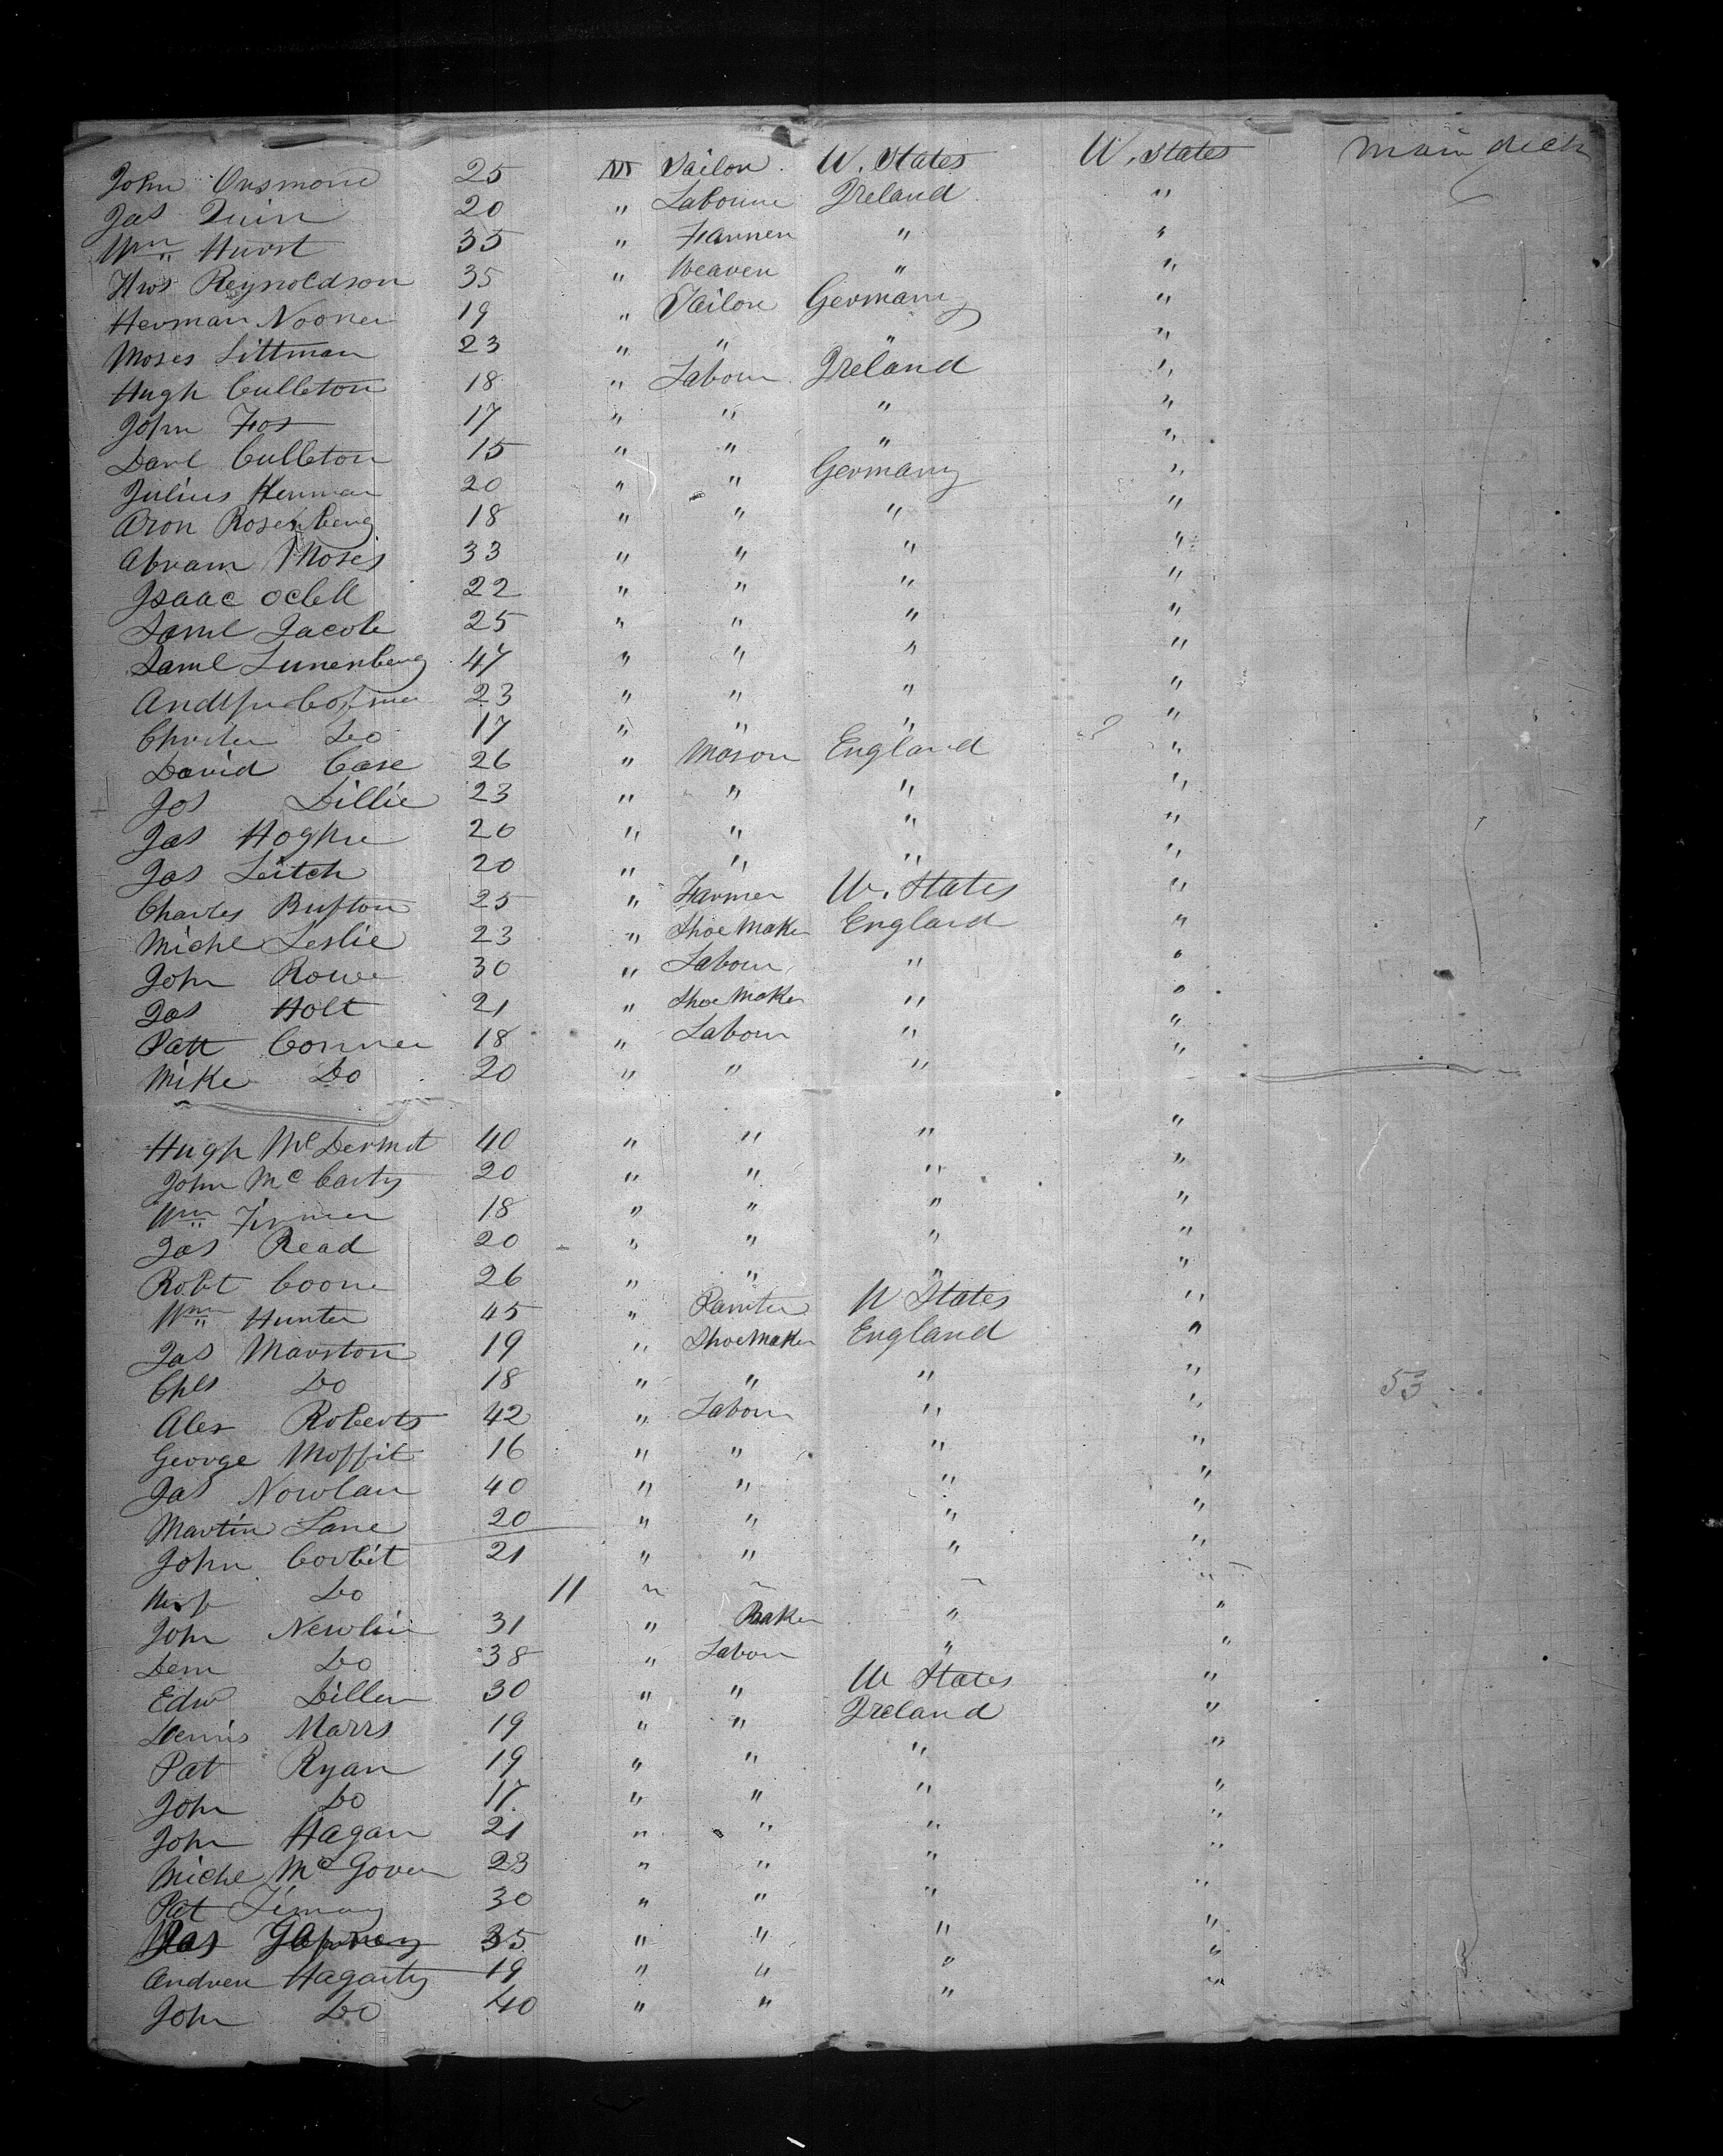 John Ousmond 25 M Tailor U. States U. States Main deck
Jas Quin 20 " Labourer Ireland "
Wm Hurst 35 " Farmer " "
Thos Reynoldson 35 " Weaver " "
Herman Nooner 19 " Tailor Germany "
Moses Littman 23 " " " "
Hugh Culleton 18 " Labour Ireland "
John Fox 17 " " " "
Danl Culleton 15 " " " "
Julius Herman 20 " " Germany "
Aron Rosenberg 18 " " " "
Abram Moses 33 " " " "
Isaac 22 " " " "
Saml Jacob 25 " " " "
Saml Lunenberg 47 " " " "
23 " " " "
Do 17 " " " "
David Case 26 " Mason England "
Jos Dillie 23 " " " "
Jas 20 " " " "
Jas Leitch 20 " " " "
Charles Bufton 25 " Farmer U. States "
Michl Leslie 23 " Shoe Maker England "
John Rowe 30 " Labour " "
Jas Holt 21 " Shoe Maker " "
Patt Conner 18 " Labour " "
Mike Do 20 " " "
Hugh McDermot 40 " " " "
John McCarty 20 " " " "
Wm 18 " " " "
Jas Read 20 " " " "
Robt Coone 26 " " " "
Wm Hunter 45 " Painter U States "
Jas Marston 19 " Shoe Maker England "
Chls Do 18 " " " " 53
Alex Roberts 42 " Labour " "
George Moffit 16 " " " "
Jas Nowlan 40 " " " "
Martin Lane 20 " " " "
John Corbit 21 " " " "
Do 11 " " " "
John Newlin 31 " Baker " "
Dem Do 38 " Labour " "
Edw Dillen 30 " " U States "
Dennis Marrs 19 " " Ireland "
Pat Ryan 19 " " " "
John Do 17 " " " "
John Hagan 21 " " " "
Michl McGovern 23 " " " "
Pat 30 " " " "
Jas 35 " " " "
Andrew Hagarty 19 " " " "
John Do 40 " " "